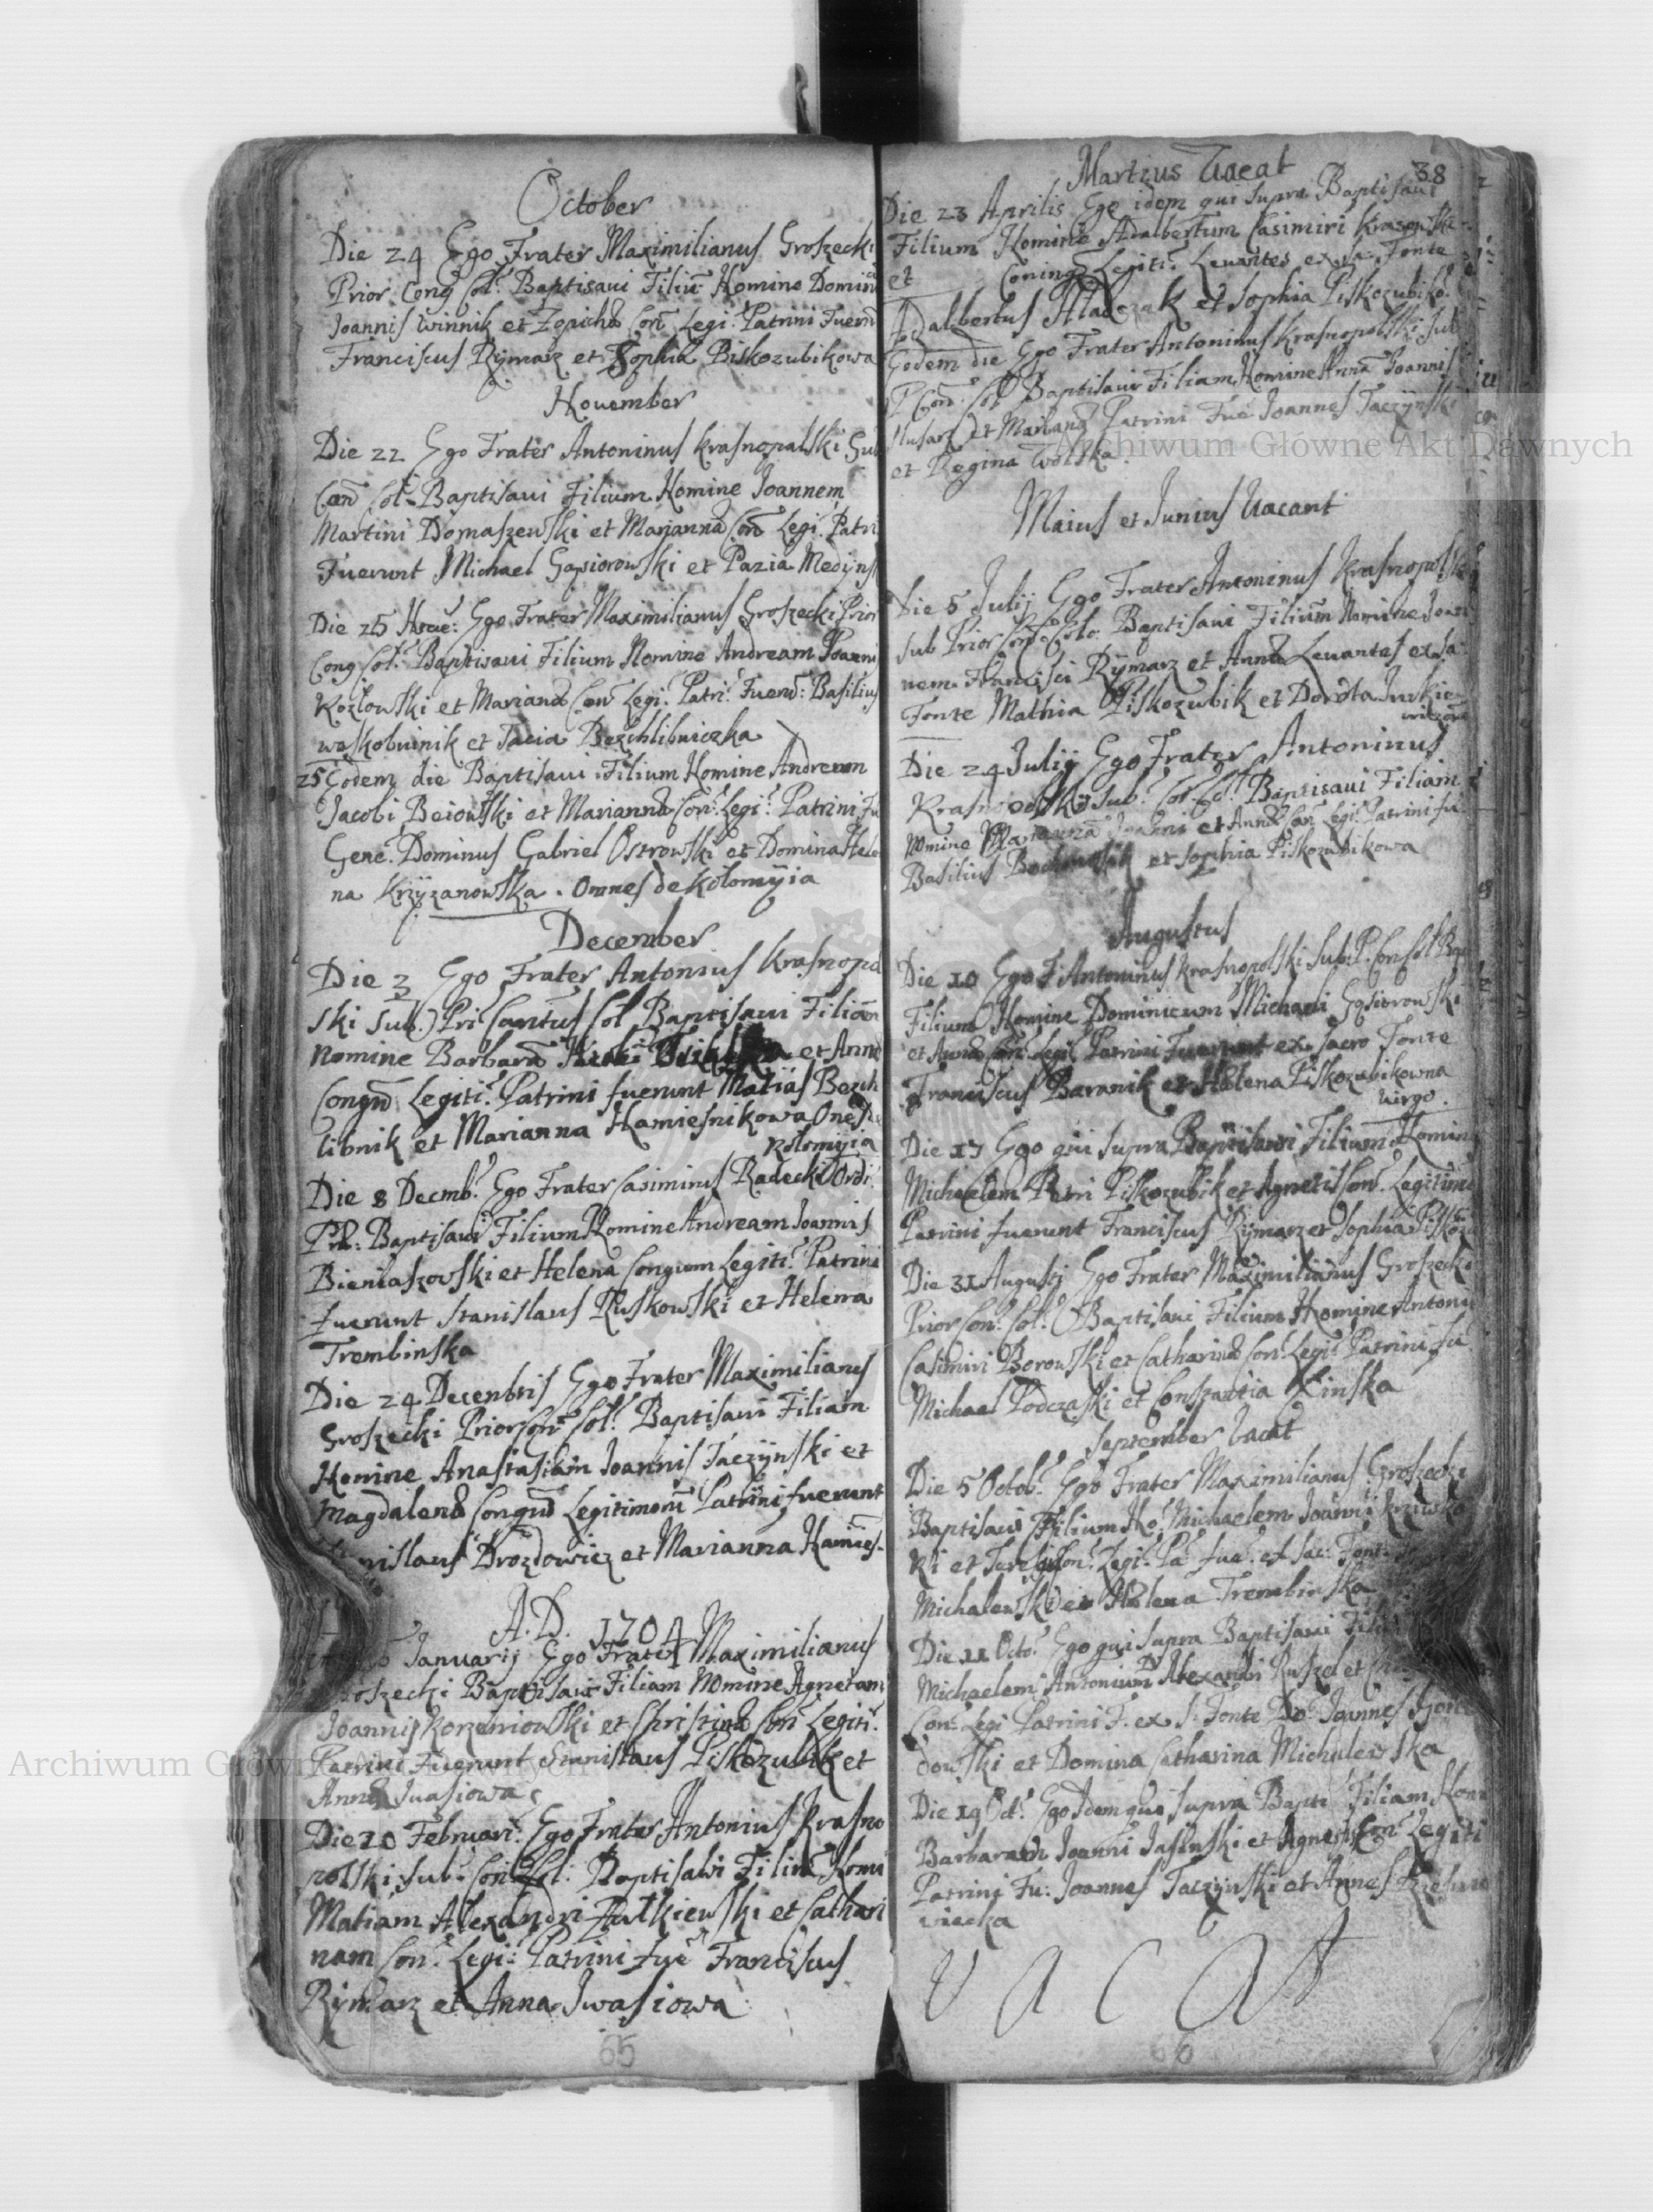 October
Die 24 Ego Frater Maximilianus Groszecki
Prior Cong Col: Baptisavi Filiū Nomine Domini
Joannis Winnik et Zopichæ Con Legi: Patrini Fuerū
Franciscus Rymarz et Sophia Piskozubikowa
November
Die 22 Ego Frater Antoninus Krasnopolski Sub
Con Col: Baptisavi Filium Nomine Joannem
Martini Domaszewski et Mariannæ Con Legi: Patri
Fuerunt Michael Gąsiorowski et Pazia Medyns
Die 25 Ego Frater Maximilianus Groszecki Prior
Cong Col: Baptisavi Filium Nomine Andream Joanni
Kozłowski et Mariannæ Con Legi: Patri: Fuerū: Basilius
woskobuinik et Tacia Bezchlibniczka
25 Eodem die Baptisavi Filium Nomine Andream
Jacobi Beiowski et Mariannæ Con: Legi: Patrini Fu
Gene: Dominus Gabriel Ostrowski et Domina Hele
na Krzyzanowska. Omnes de Kołomyia
December
Die 3 Ego Frater Antonius Krasnopo
ski Sub) Pri Con Col Baptisavi Filiam
Nomine Barbarā et Annæ
Congū Legiti: Patrini fuerunt Matias Bezch
libnik et Marianna Kamiesnikowa Ones de
Kołomyia
Die 8 Decmb: Ego Frater Casimirus Radecki Ordi:
Prædi: Baptisavi Filium Nomine Andream Joannis
Bieniaszowski et Helenæ Congum Legiti: Patrini
fuerunt Stanislaus Ruskowski et Helena
Trembinska
Die 24 Decenbris Ego Frater Maximilianus
Groszecki Prior Con Col: Baptisavi Filiam
Nomine Anastasiam Joannis Taczynski et
Magdalenæ Congū Legitimorū Patrini fuerunt
Drozdowicz et Marianna Kamies-
A.D. 1704
Januarij Ego Frater Maximilianus
Baptisavi Filiam Nomine Agnetam
Joannis Korzeniowski et Christinæ Con Legiti:
Patrini Fuerunt Stanislaus Piskozubik et
Anna Iwasiowa
Die 20 Februari: Ego Frater Antonius Krasno
polski Sub: Con Col: Baptisavi Filiū Nomi
Matiam Alexandri Zułkiewski et Cathari
nam Con: Legi: Patrini Fue Franciscus
Rymarz et Anna Iwasiowa
65
Martius Vacat 38
Die 23 Aprilis Ego idem qui supra Baptisavi
Filium Nomine Adalbertum Casimiri Krasowski
et Coniugū Legiti: Levantes ex Sa: Fonte
Adalbertus et Sophia Piskozubiko:
Eodem die Ego Frater Antoninus Krasnopolski Sub
P Con: Col: Baptisavi Filiam Nomine Annā Joannis
Husarz et Mariannæ Patrini Fue Joannes Taczynski
et Regina Wolska
Maius et Junius Vacant
Die 5 Julij Ego Frater Antoninus Krasnopolski
Sub Prior Con: Colo: Baptisavi Filium Nomine Joan
nem Francisci Rymarz et Annæ Levantes ex Sa:
Fonte Mathia Piskozubik et Dorota Jurkie
wiczowa
Die 24 Julij Ego Frater Antoninus
Krasnopolski Sub: Con Col: Baptisavi Filiam
Nomine Joannis et Annæ Con Legi: Patrini Fu:
Basilius et Sophia Piskozubikowa
Augustus
Die 10 Ego F: Antoninus Krasnopolski Sub:P. Con Col Bap
Filium Nomine Dominicum Michaeli Gąsiorowski
et Annæ Con: Legi: Patrini Fuerunt ex Sacro Fonte
Franciscus Baranik et Helena Piskozubikowna
virgo.
Die 17 Ego qui supra Baptisavi Filium Nomine
Michaelem Petri Piskozubik et Agnetis Con: Legitimo
Patrini fuerunt Franciscus Rymarz et Sophia Piskozu
Die 31 Augusti Ego Frater Maximilianus Groszecki
Prior Con: Col: Baptisavi Filium Nomine Antoniu
Casimiri Borowski et Catharinæ Con: Legi: Patrini Fu:
Michael Podczaski et Constantia Kinska
September Vacat
Die 5 Octob: Ego Frater Maximilianus Groszecki
Baptisavi Filium No: Michaelem Joanni
ki et Con: Legi: Pa: fue: ex Sac: Fonte
Michalewski et Helena Trembinska
Die 11 Octo: Ego qui supra Baptisavi
Michaelem Antonium D. Alexandri Ruszel et
Con: Legi Patrini F. ex S: Fonte Do: Joannes
dowski et Domina Catharina Michalewska
Die 19 Oct: Ego Idem qui supra Bapti Filiam Nomi
Barbaram Joanni Jasinski et Agnetis Con: Legiti
Patrini Fu: Joannes Taczynski et Agnes
wiecka
V A C A T
66
Archiwum Główne Akt Dawnych
Archiwum Główne Akt Dawnych